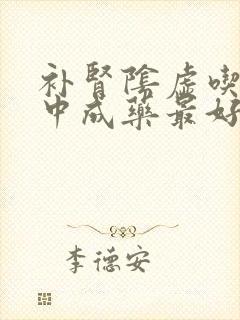 补肾阴虚喫
中成药最好
李德安